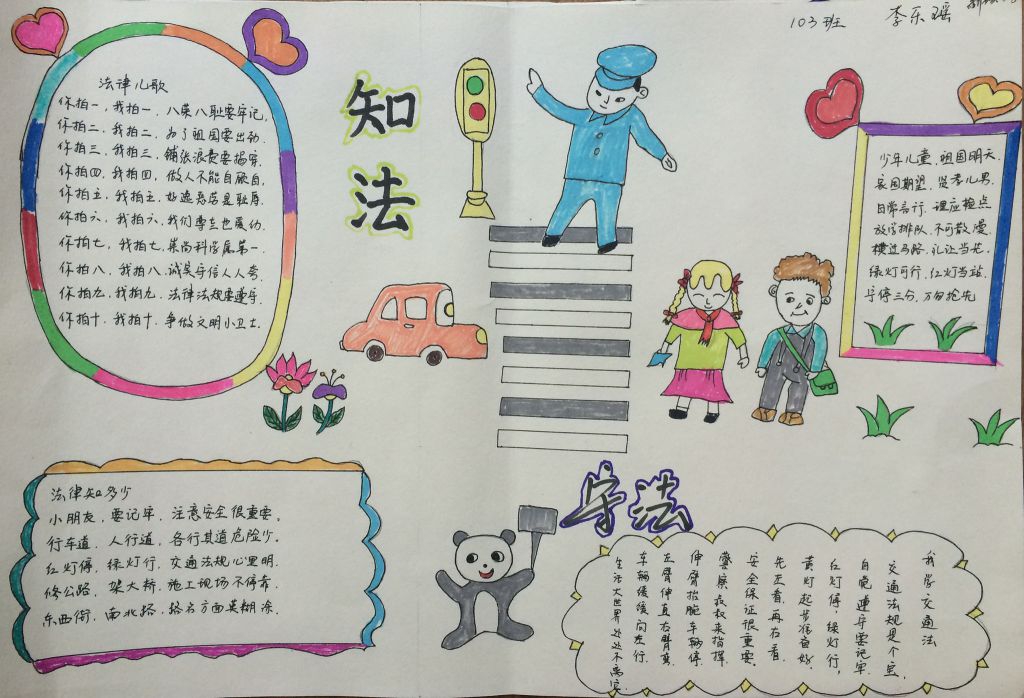 103班 李乐瑶
法律儿歌
你拍一,我拍一,八荣八耻要牢记,
你拍二,我拍二,为了祖国要出动.
你拍三,我拍三,铺张浪费要揭穿.
你拍四,我拍四,做人不能自顾自.
你拍五,我拍五,好逸恶劳是耻辱.
你拍六,我拍六,我们尊老也爱幼.
你拍七,我拍七,崇尚科学属第一.
你拍八,我拍八,诚实守信人人夸.
你拍九,我拍九,法律法规要遵守.
你拍十,我拍十,争做文明小卫士.
知法
少年儿童,祖国明天.
家国期望,贤孝儿男.
日常言行,理应检点
放学排队,不可散漫
横过马路,礼让当先.
绿灯可行,红灯当站.
宁停三分,万勿抢先
法律知多少
小朋友,要记牢,注意安全很重要。
行车道,人行道,各行其道危险少。
红灯停,绿灯行,交通法规心里明.
修公路,架大桥,施工现场不停靠.
东西街,南北路,格方方面莫糊涂.
守法
我学交通法
交通法规是个宝,
自觉遵守要记牢.
红灯停,绿灯行,
黄灯起步须看好.
先左看,再右看,
安全保证很重要.
警察叔叔来指挥,
伸臂抬腕车辆停.
左臂伸直右臂摆,
车辆缓缓向左行.
生活大世界处处不离它